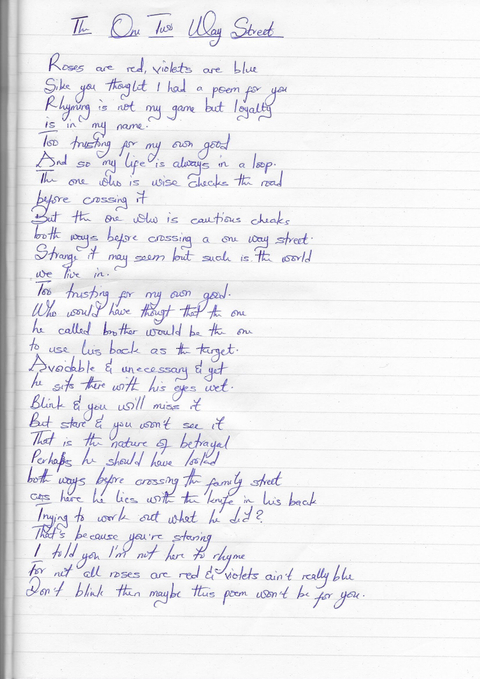 The One Two Way Street
Roses are red, violets are blue
Sike you thought I had a poem for you
Rhyming is not my game but loyalty
is in my name.
Too trusting for my own good
And so my life is always in a loop.
The one who is wise checks the road
before crossing it
But the one who is cautious checks
both ways before crossing a one way street.
Strange it may seem but such is the world
we live in.
Too trusting for my own good.
Who would have thought that the one
he called brother would be the one
to use his back as the target.
Avoidable & unecessary & yet
he sits there with his eyes wet.
Blink & you will miss it
But stare & you won't see it
That is the nature of betrayal
Perhaps he should have looked
both ways before crossing the family street
cos here he lies with the knife in his back
Trying to work out what he did?
That's because you're staring
I told you I'm not here to rhyme
For not all roses are red & violets ain't really blue
Don't blink then maybe this poem won't be for you.